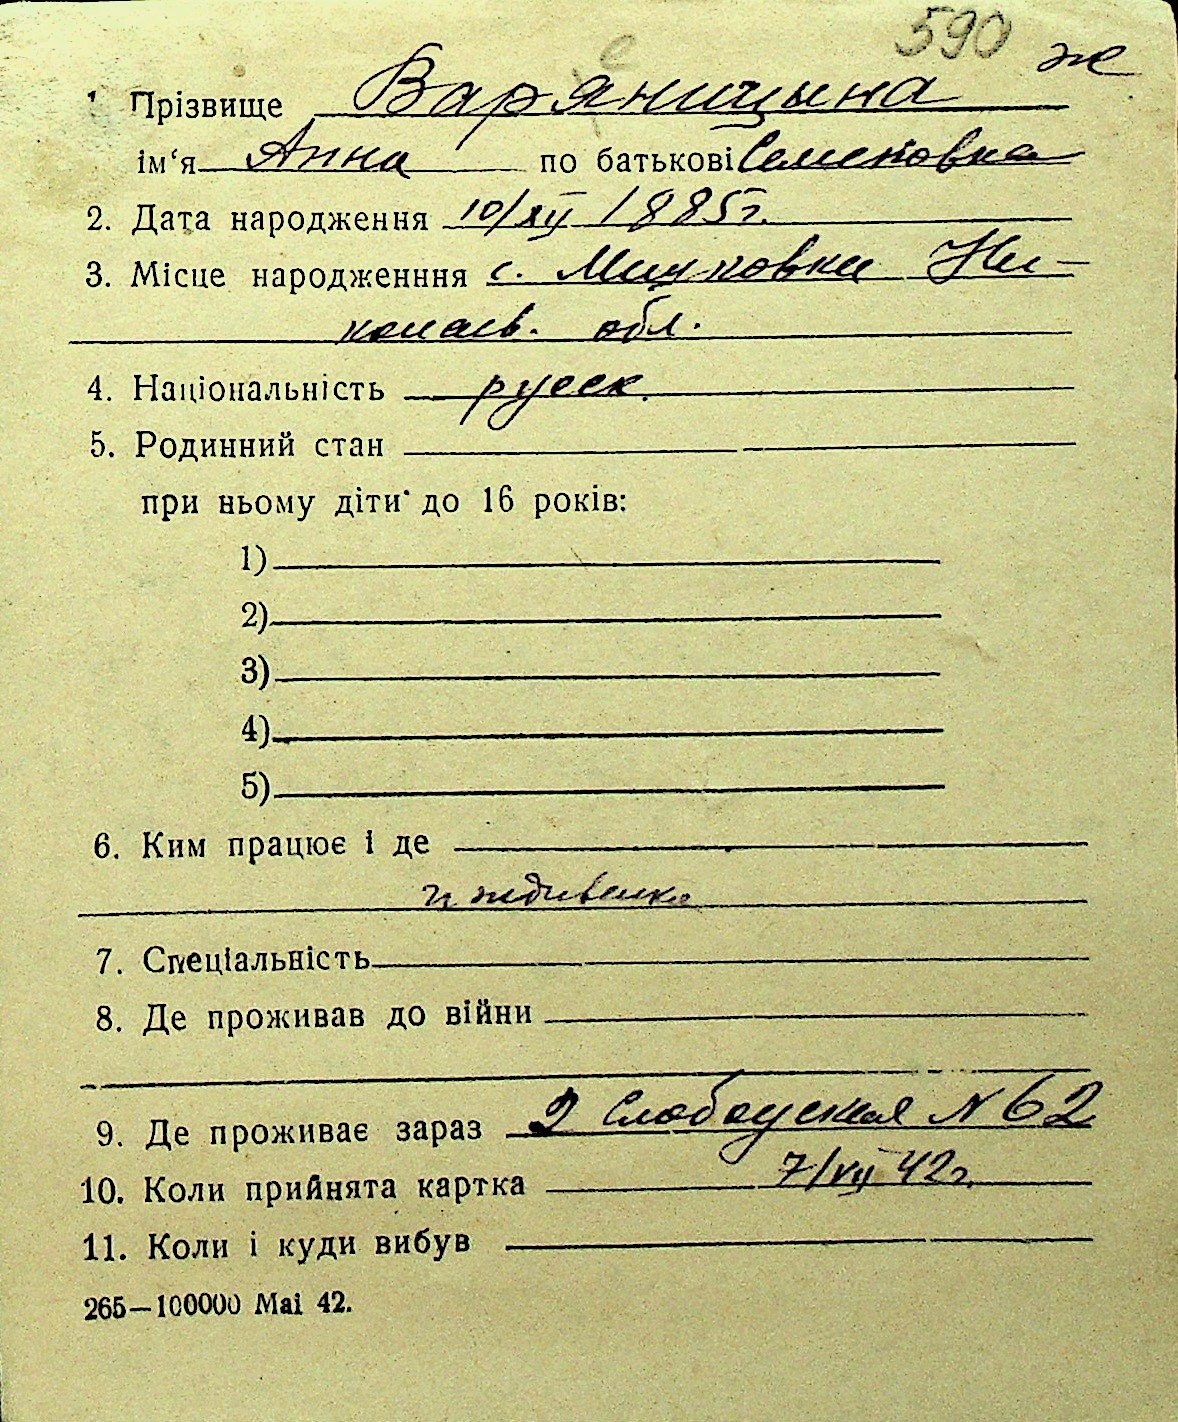 590 ж
1 Прізвище Варяницына
ім‘я Анна по батькові Семеновна
2. Дата народження 10/XII 1885г.
3. Місце народженння с. Мишковки Ни-
колаев. обл.
4. Національність русск.
5. Родинний стан
при ньому діти до 16 років:
1)
2)
3)
4)
5)
6. Ким працює і де
иждивенка
7. Спеціальність
8. Де проживав до війни
9. Де проживає зараз 2 Слободская N 62
10. Коли прийнята картка 7/VII 42г.
11. Коли і куди вибув
265—100000 Mai 42.